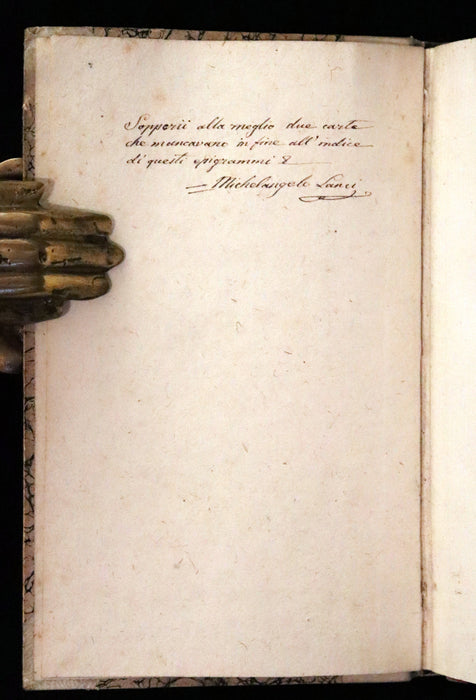 Sopperii alla meglio due carte
che mancavano in fine all'indice
di questi epigrammi &
— Michelangelo Lanci.